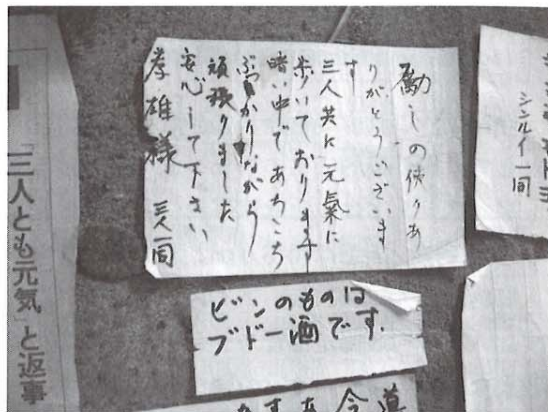 「三人とも元気」と返事
励しの便りあ
りがとうございま
す
三人共に元氣に
歩いております
暗い中であちこち
ぶつかりながら
頑張りました
安心して下さい
孝雄様 三人一同
シンルイ一同
ビンのものは
ブドー酒です.